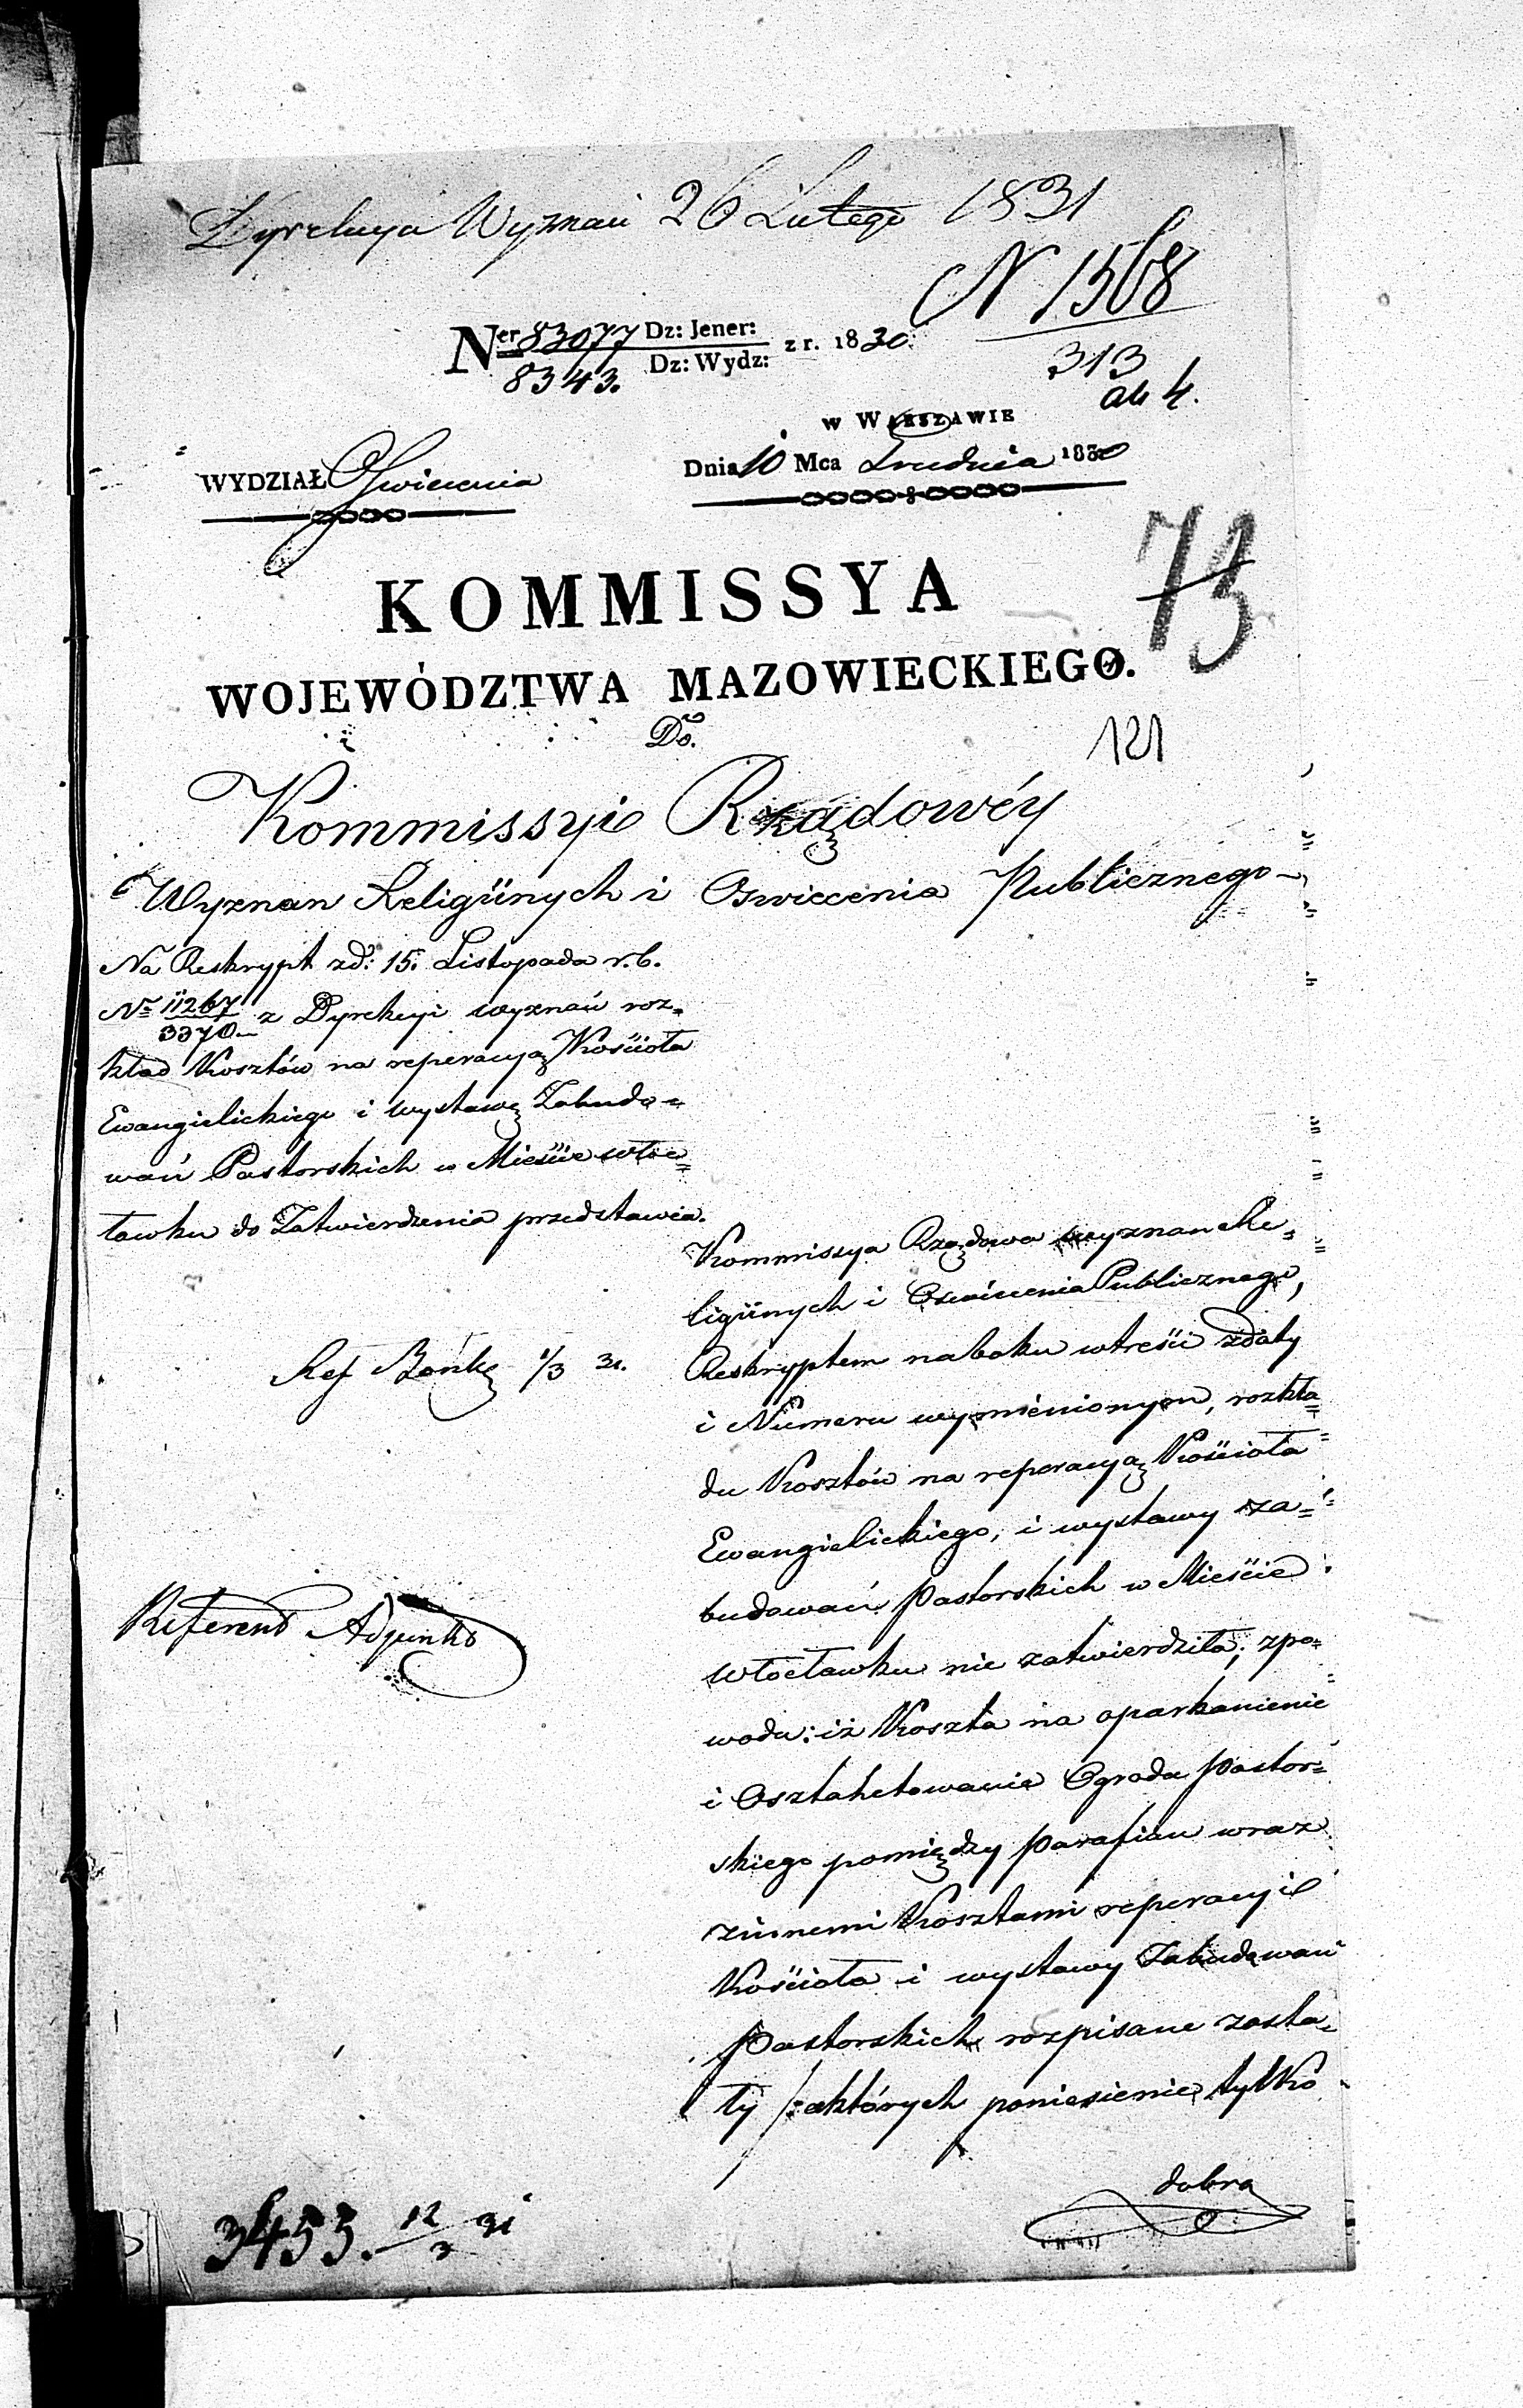 Dyrekcya Wyznań 26 Lutego 1831
N 1568
313
ab 4.
Ner 83077 Dz: Jener: z r. 1830.
8343. Dz: Wydz:
w WARSZAWIE
WYDZIAŁ Oświecenia
Dnia 10 Mca Grudnia 1830
73
KOMMISSYA
WOJEWÓDZTWA MAZOWIECKIEGO.
Do.
121
Kommissyi Rządowéy
Wyznan Religiinych i Oswiecenia Publicznego
Na Reskrypt z d: 15. Listopada r. b.
No 11267 z Dyrekcyi wyznań roz=
3370.—
kład Kosztów na reperacyą Kościoła
Ewangielickiego i wystawę Zabudo=
wań Pastorskich w Mieście Wło=
cławku do Zatwierdzenia przedstawia.
Kommissya Rządowa wyznan Re=
ligiinych i Oswiecenia Publicznego,
Reskryptem na boku w treści z daty
i Numeru wymienionym, rozkła=
du Kosztów na reperacyą Kościoła
Ewangielickiego, i wystawy za=
budowań Pastorskich w Mieście
Włocławku nie zatwierdziła; z po=
wodu: iż Koszta na oparkanienie
i Osztahetowanie Ogrodu Pastor=
skiego pomiędzy Parafian wraz
z innemi Kosztami reperacyi
Kościoła i wystawy Zabudowań
Pastorskich rozpisane zosta=
ły /: których poniesienie tylko
dobra
Ref 1/3 31.
Referent Adjunkt
3453. 12/3 31